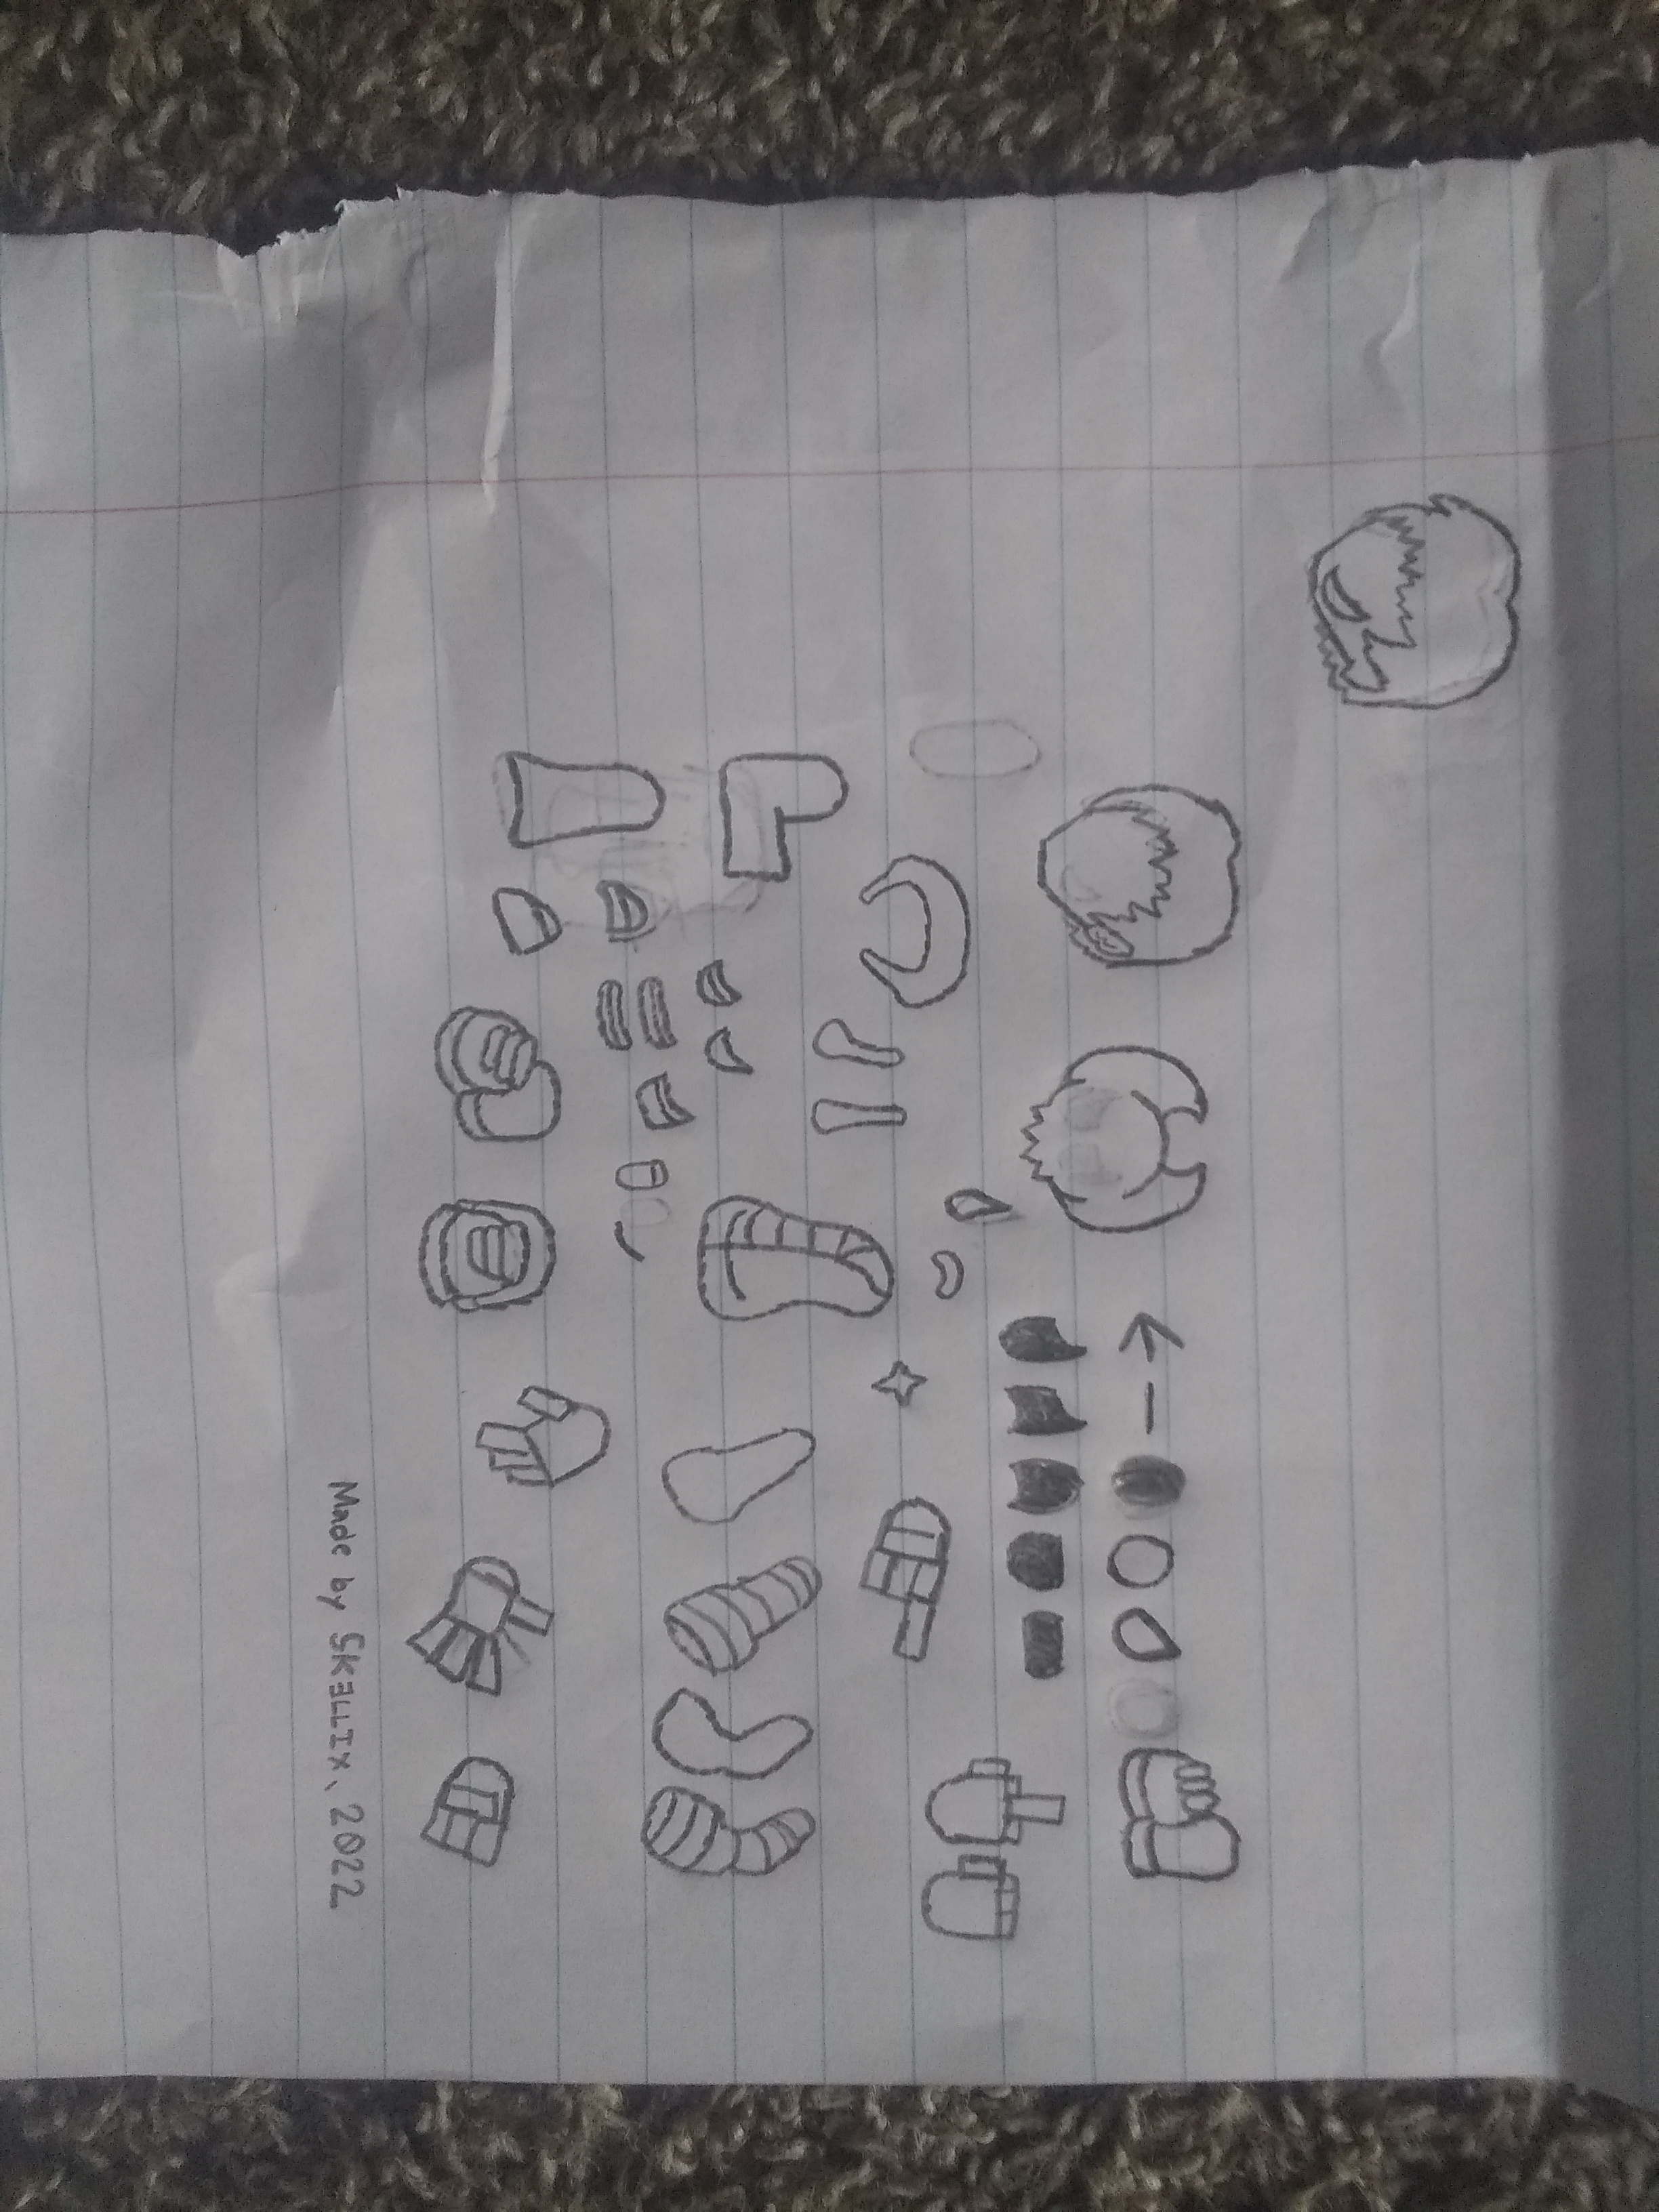 Made by SKELLIX, 2022